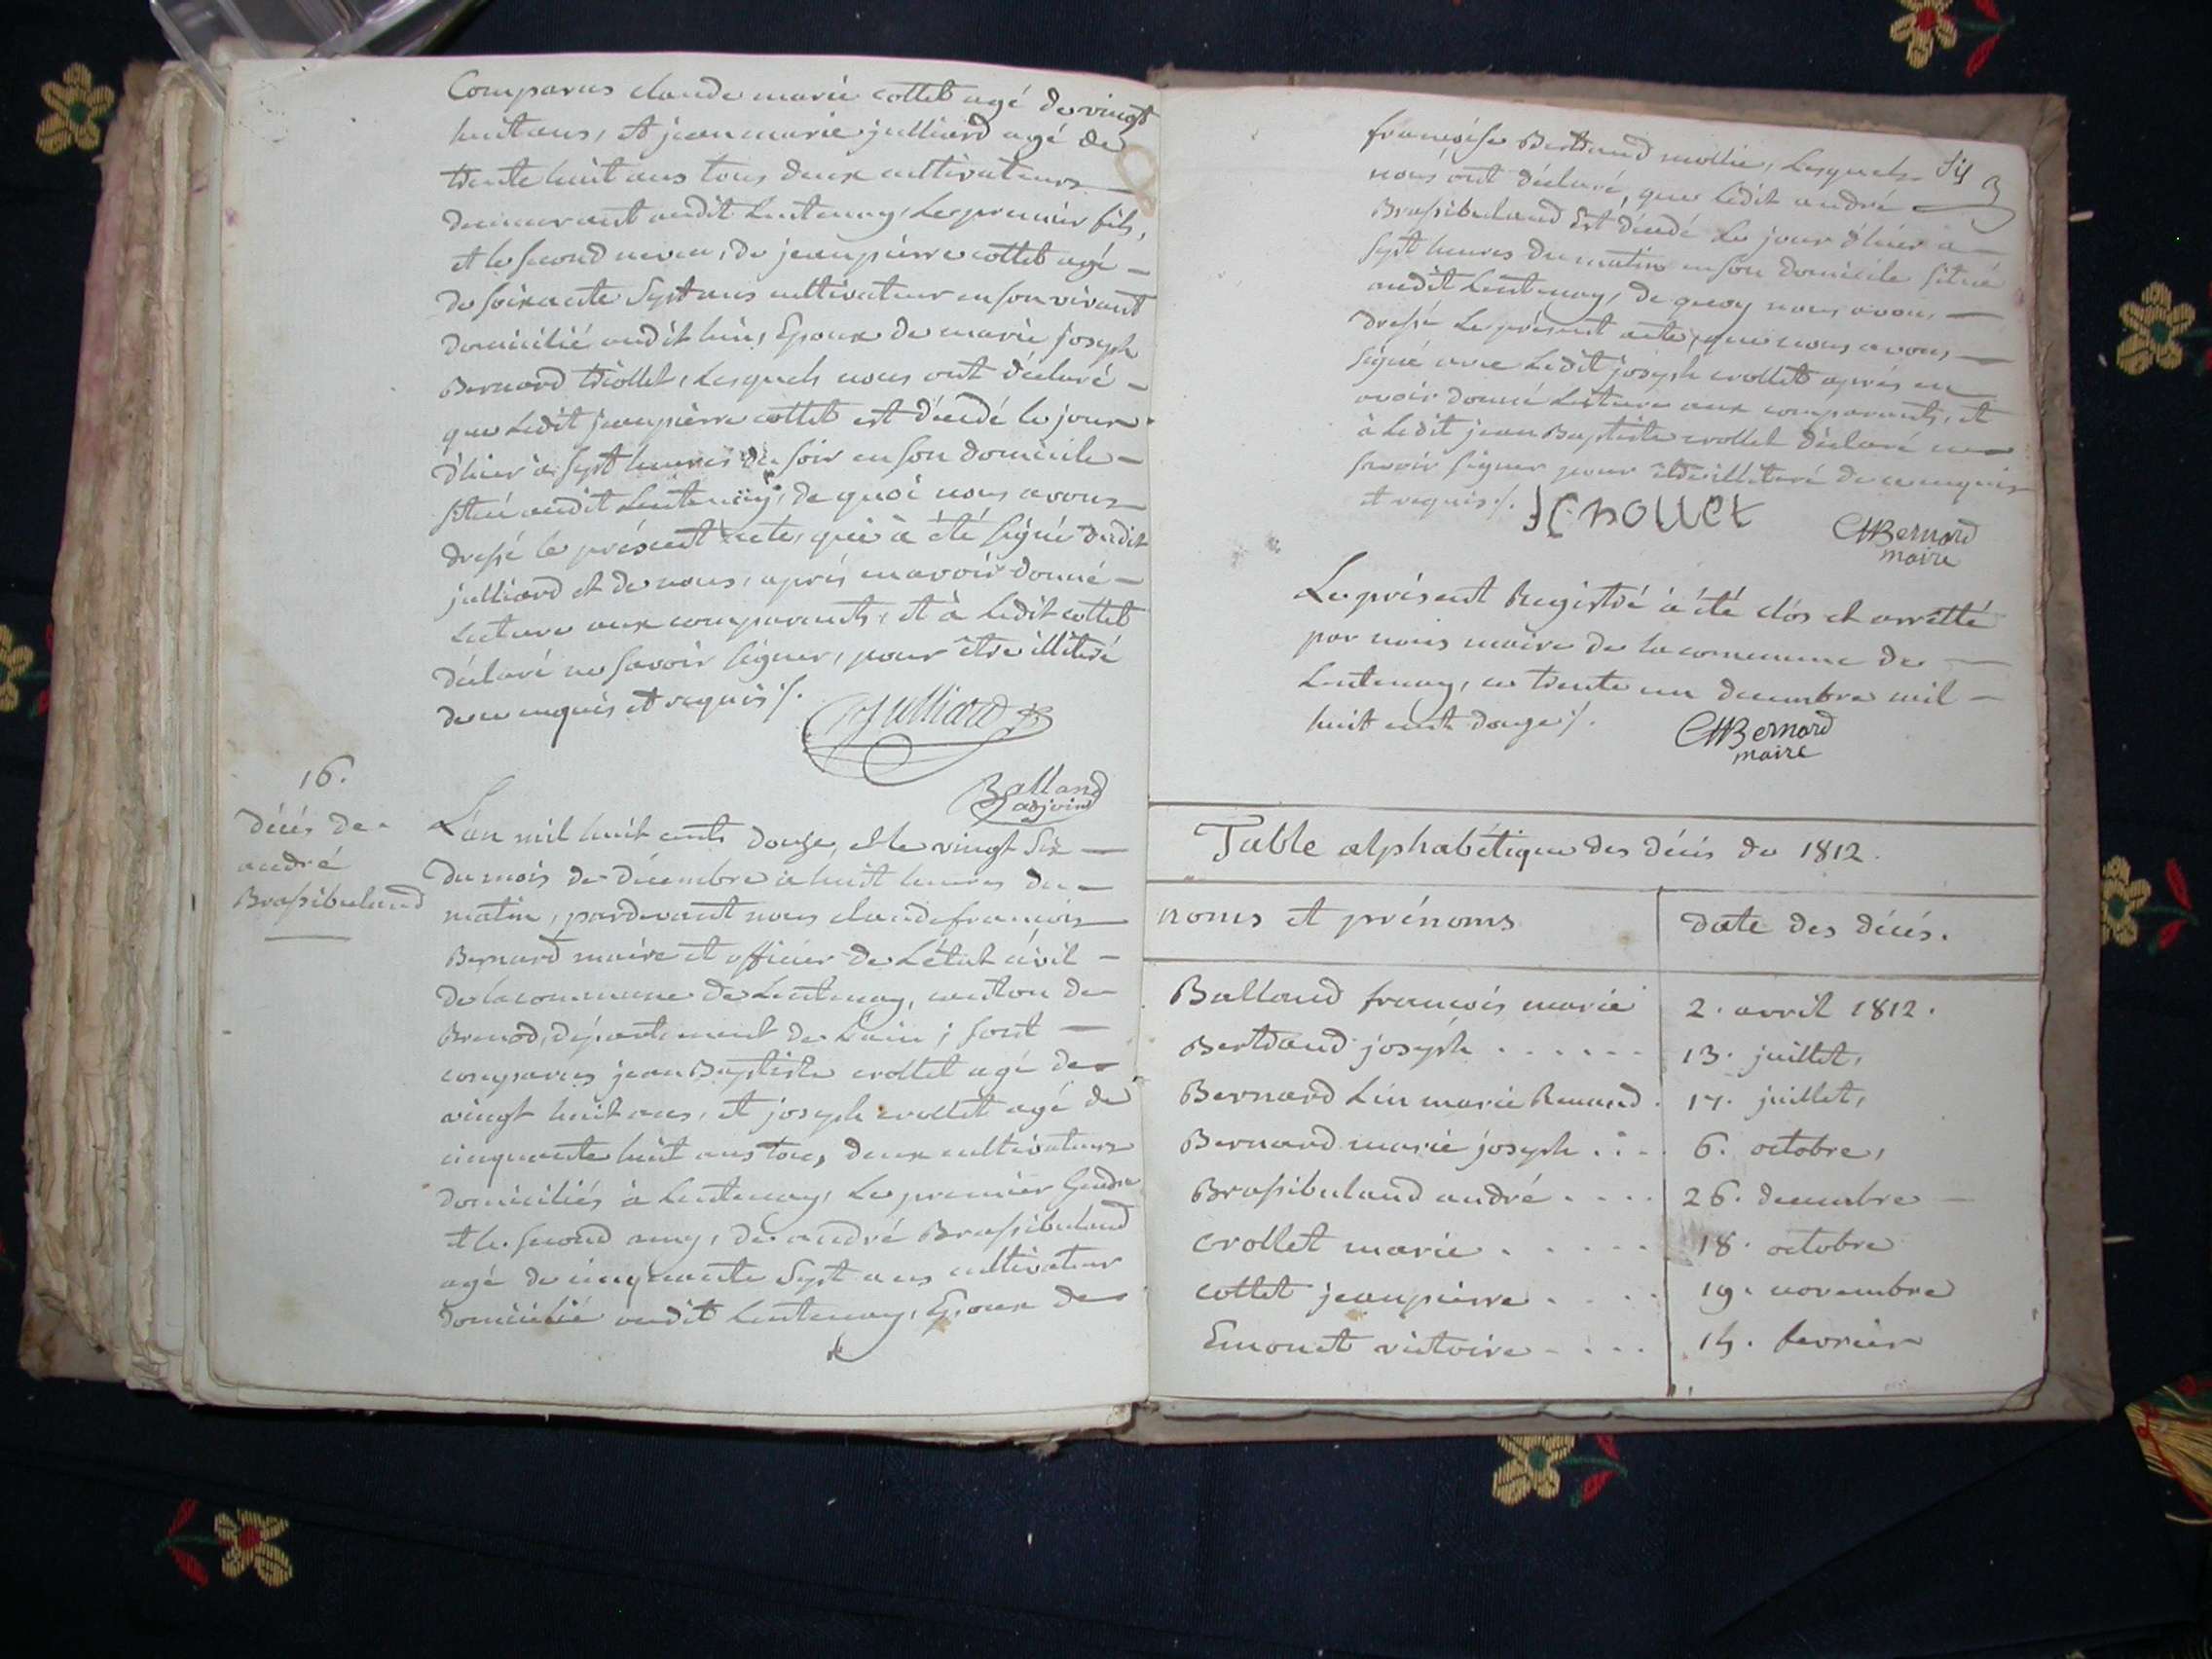 Comparus claude marie collet agé de vingt
huit ans, et jean marie julliard agé de
trente huit ans tous deux cultivateurs
demeurant audit Lentenay, Le premier fils,
et le second neveu, de jean pierre collet agé
de soixante Sept ans cultivateur en son vivant
domicilié audit lieu, Epoux de marie joseph
Bernard triollet, Lesquels nous ont déclaré
que Ledit jean pierre collet est décédé le jour
d'hier à Sept heures du soir en son domicile
situé audit Lentenay, de quoi nous avons
dressé le présent acte, qui à été signé dudit
julliard et de nous, après en avoir donné
Lecture aux comparants, et à Ledit collet
déclaré ne savoir signer, pour être illiteré
de ce enquis et requis ./.
Julliard
Balland
adjoint
16.
Décés de
andré
Brassibuland
L'an mil huit cents douze, et le vingt Six
du mois de décembre à huit heures du
matin, pardevant nous claude françois
Bernard maire et officier de L'état civil
de la commune de Lentenay, canton de
Brenod, département de L'ain ; sont
comparus jean Baptiste crollet agé de
vingt huit ans, et joseph crollet agé de
cinquante huit ans tous deux cultivateurs
domiciliés à Lentenay, Le premier Gendre
et le second amy, de andré Brassibuland
agé de cinquante Sept ans cultivateur
domicilié audit Lentenay, Epoux de
françoise Bertrand mollie, Lesquels
nous ont déclaré, que Ledit andré
Brassibuland Est décédé Le jour d'hier à
Sept heures du matin en son domicile situé
audit Lentenay, de quoy nous avons
dressé Le présent acte, que nous avons
signé avec Ledit joseph crollet après en
avoir donné Lecture aux comparants, et
à Ledit jean Baptiste crollet déclaré ne
savoir signer pour être illiteré de ce enquis
et requis ./.
CHBernard
maire
Le présent Registre à été clos et arretté
par nous maire de la commune de
Lentenay, ce trente un decembre mil
huit cent douze ./.
CHBernard
maire
Table alphabétique des décés de 1812.
noms et prénoms
date des décés.
Balland françois marie
2. avril 1812.
Bertrand joseph . . . . . .
13. juillet,
Bernard Lin marie Renaud .
17. juillet,
Bernard marie joseph . . .
6. octobre,
Brassibuland andré . . . .
26. decembre
crollet marie . . . . .
18. octobre
collet jean pierre . . . .
19. novembre
Emonet victoire . . . .
14. fevrier